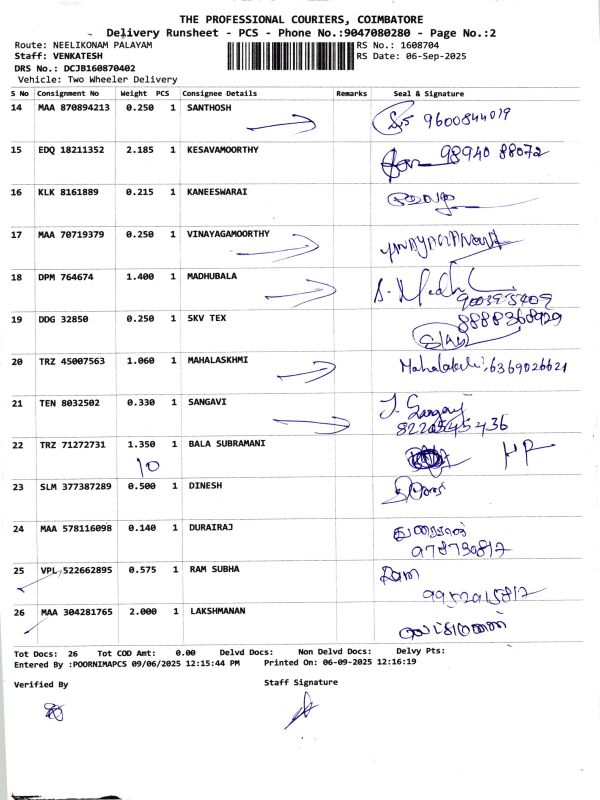 THE PROFESSIONAL COURIERS, COIMBATORE
Delivery Runsheet - PCS - Phone No.:9047080280 - Page No.:2
Route: NEELIKONAM PALAYAM RS No.: 1608704
Staff: VENKATESH RS Date: 06-Sep-2025
DRS No.: DCJB160870402
Vehicle: Two Wheeler Delivery
S No Consignment No Weight PCS Consignee Details Remarks Seal & Signature
14 MAA 870894213 0.250 1 SANTHOSH 9600844019
15 EDQ 18211352 2.185 1 KESAVAMOORTHY 98940 88072
16 KLK 8161889 0.215 1 KANEESWARAI
17 MAA 70719379 0.250 1 VINAYAGAMOORTHY
18 DPM 764674 1.400 1 MADHUBALA
9003975409
19 DDG 32850 0.250 1 SKV TEX 8888368929
20 TRZ 45007563 1.060 1 MAHALASKHMI 6369026621
21 TEN 8032502 0.330 1 SANGAVI
22 TRZ 71272731 1.350 1 BALA SUBRAMANI
10
23 SLM 377387289 0.500 1 DINESH
24 MAA 578116098 0.140 1 DURAIRAJ
25 VPL 522662895 0.575 1 RAM SUBHA Ram
26 MAA 304281765 2.000 1 LAKSHMANAN
Tot Docs: 26 Tot COD Amt: 0.00 Delvd Docs: Non Delvd Docs: Delvy Pts:
Entered By :POORNIMAPCS 09/06/2025 12:15:44 PM Printed On: 06-09-2025 12:16:19
Verified By Staff Signature